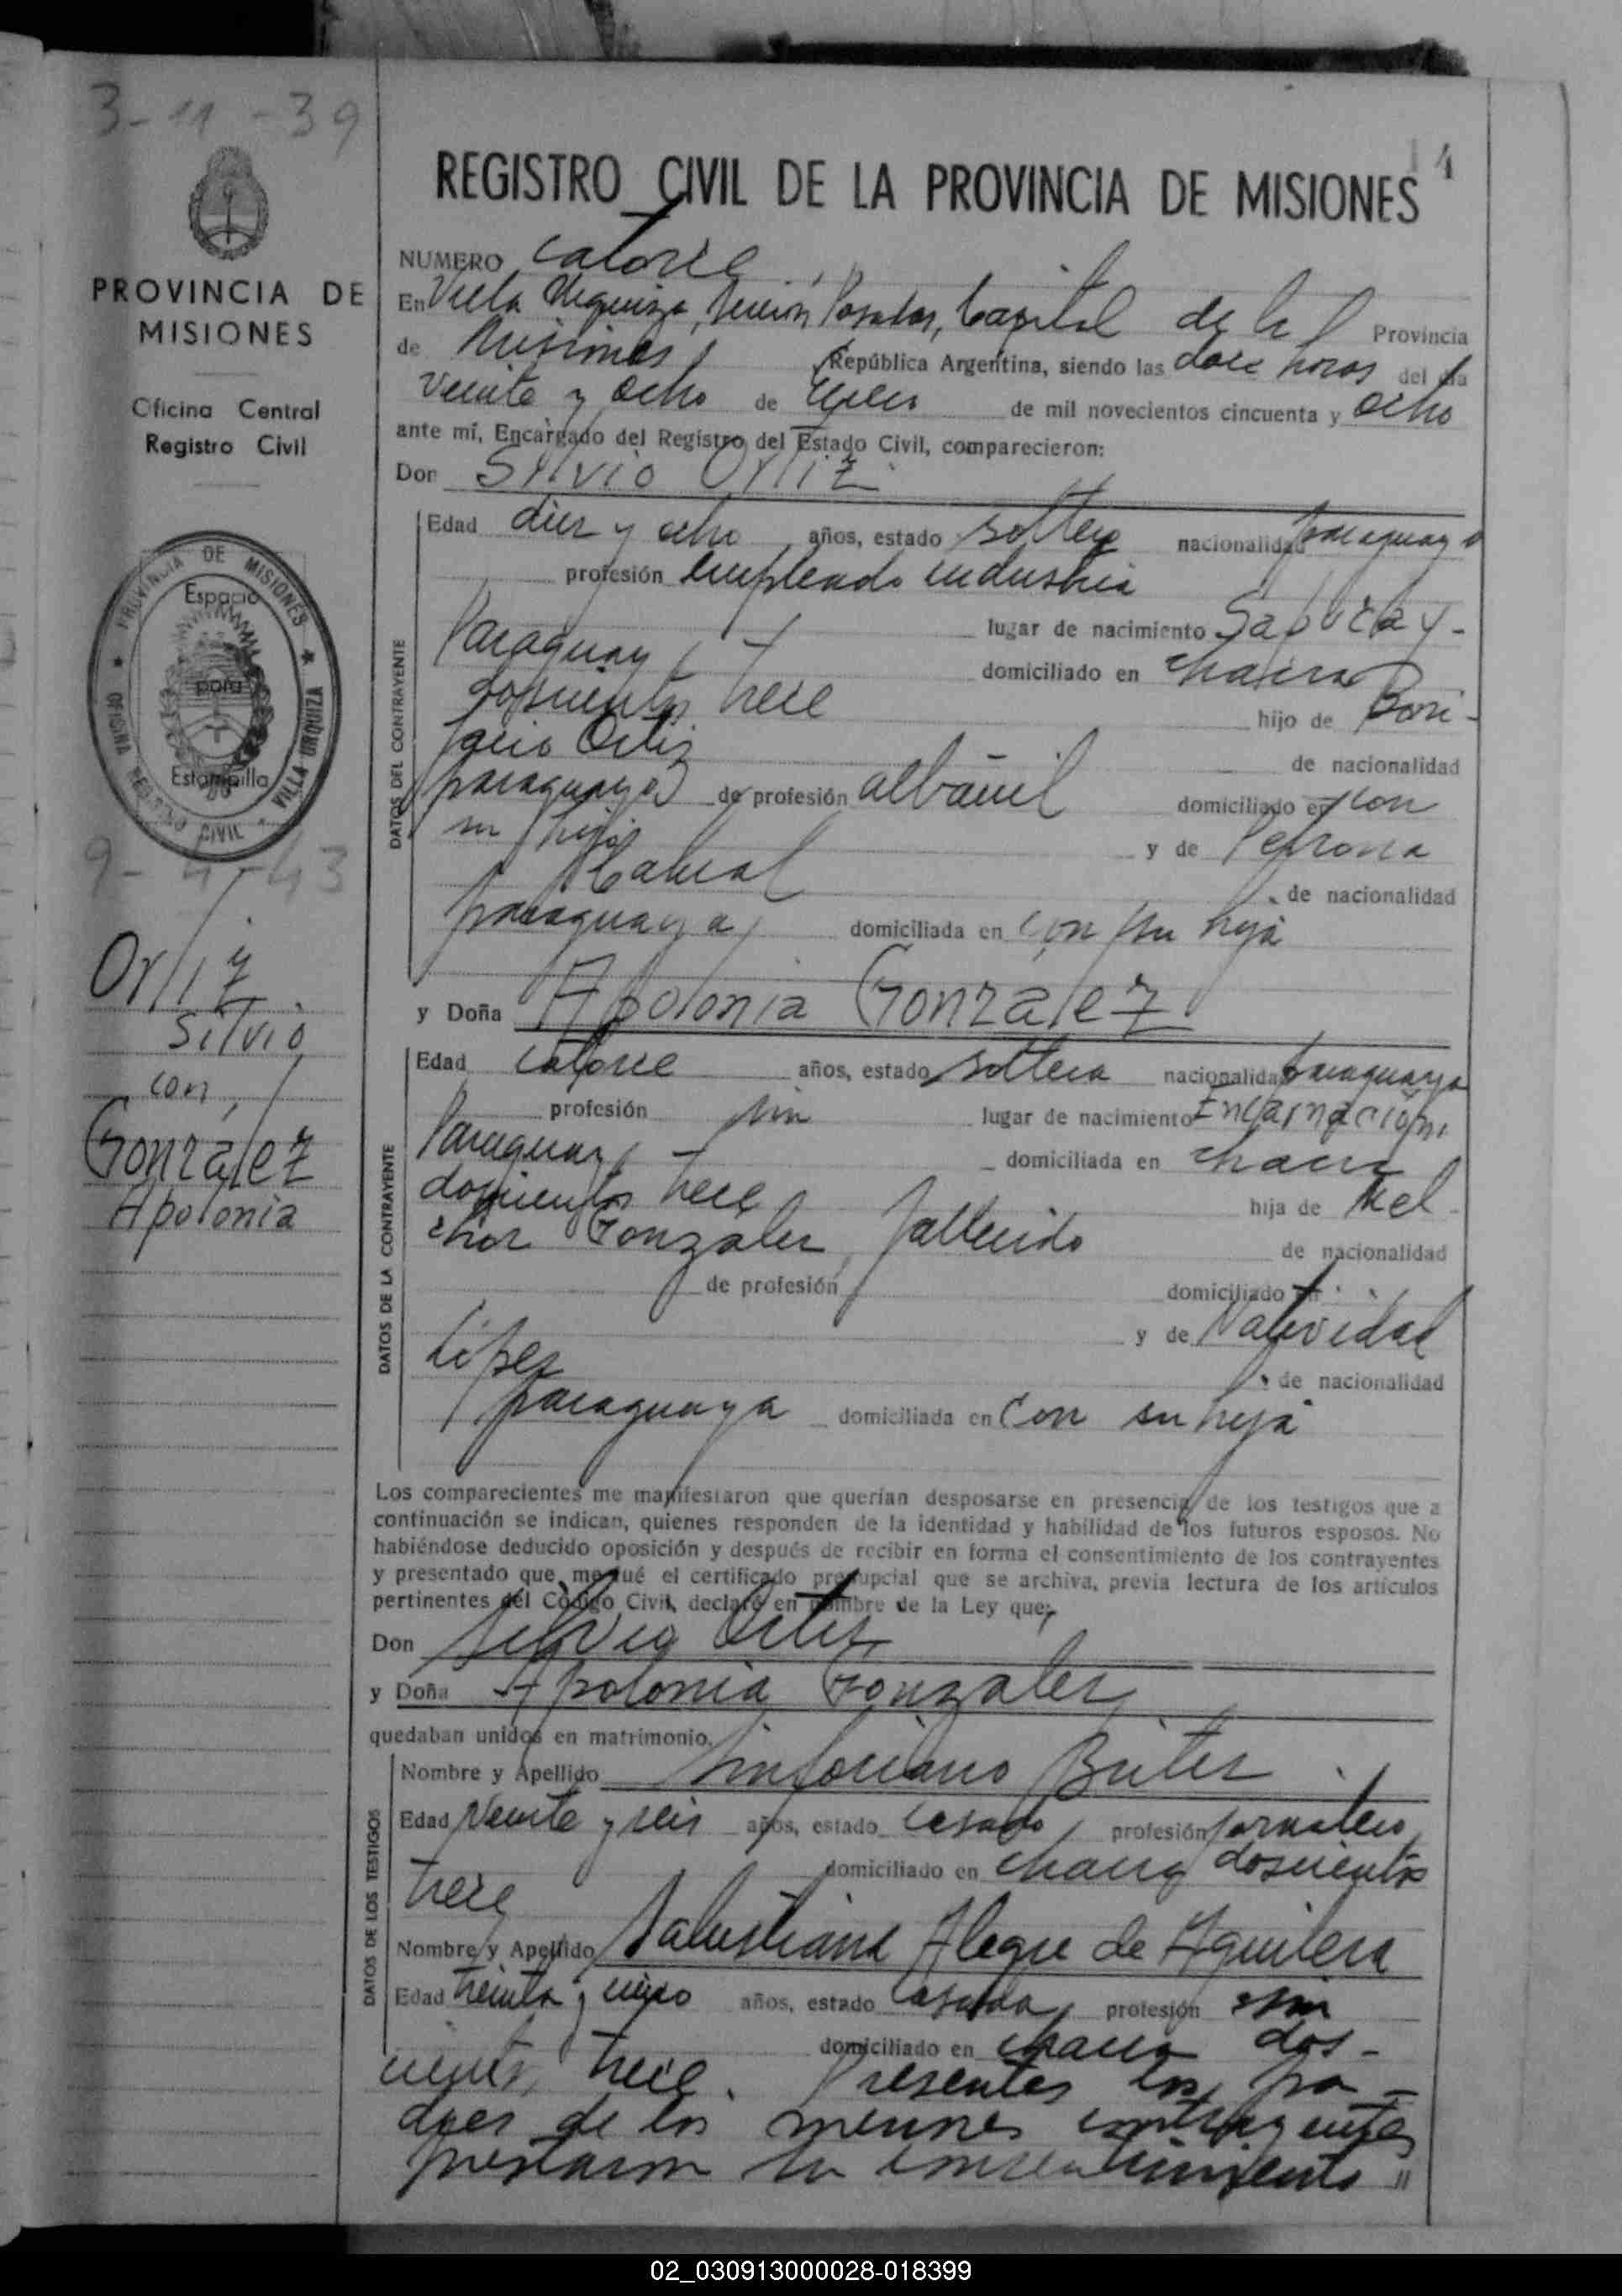 3-11-39
14
REGISTRO CIVIL DE LA PROVINCIA DE MISIONES
PROVINCIA DE
MISIONES
Oficina Central
Registro Civil
PROVINCIA DE MISIONES
OFICINA REGISTRO CIVIL VILLA URQUIZA
Espacio
para
Estampilla
9-4-43
Ortiz
Silvio
con
Gonzalez
Apolonia
NUMERO catorce
En Villa Urquiza, Sección Posadas, Capital de la Provincia
de Misiones, República Argentina, siendo las doce horas del día
veinte y ocho de de mil novecientos cincuenta y ocho
ante mí, Encargado del Registro del Estado Civil, comparecieron:
Don Silvio Ortiz
DATOS DEL CONTRAYENTE
Edad diez y ocho años, estado soltero nacionalidad paraguayo
profesión empleado industria
lugar de nacimiento Sapucay-
Paraguay, domiciliado en chacra
doscientos trece hijo de Boni-
facio Ortiz de nacionalidad
paraguayo de profesión albañil domiciliado en con
su hijo y de Petrona
Cabral de nacionalidad
paraguaya, domiciliada en con su hijo
y Doña Apolonia Gonzalez
DATOS DE LA CONTRAYENTE
Edad catorce años, estado soltera nacionalidad paraguaya
profesión sin lugar de nacimiento Encarnación,
Paraguay, domiciliada en chacra
doscientos trece hija de Mel-
chor Gonzalez, fallecido de nacionalidad
de profesión domiciliado en
y de Natividad
López de nacionalidad
paraguaya domiciliada en con su hija
Los comparecientes me manifestaron que querían desposarse en presencia de los testigos que a
continuación se indican, quienes responden de la identidad y habilidad de los futuros esposos. No
habiéndose deducido oposición y después de recibir en forma el consentimiento de los contrayentes
y presentado que me fué el certificado prenupcial que se archiva, previa lectura de los artículos
pertinentes del Código Civil, declaré en nombre de la Ley que:
Don Silvio Ortiz
y Doña Apolonia Gonzalez
quedaban unidos en matrimonio.
DATOS DE LOS TESTIGOS
Nombre y Apellido Sinforiano
Edad veinte y seis años, estado casado, profesión jornalero
domiciliado en chacra doscientos
trece
Nombre y Apellido Salustiana Alegre de Aguilera
Edad treinta y cinco años, estado casada, profesión sin
domiciliado en chacra dos-
cientos trece. Presentes los pa-
dres de los menores contrayentes
prestaron su consentimiento
02_030913000028-018399